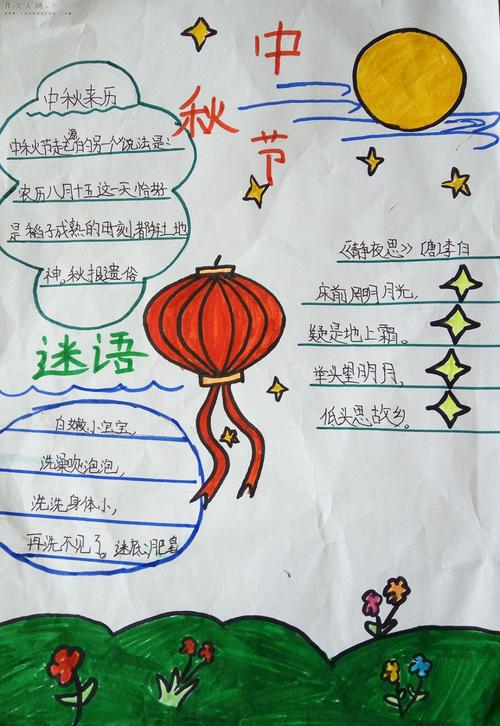 作文人网
中
秋
节
中秋来历
中秋节起源的另个说法是:
农历八月十五这一天恰好
是稻子成熟的时刻都拜土地
神。秋报遗俗
《静夜思》(唐)李白
床前明月光,
疑是地上霜。
举头望明月,
低头思故乡。
迷语
白嫩小宝宝,
洗澡吹泡泡,
洗洗身体小,
再洗不见了。迷底:肥皂